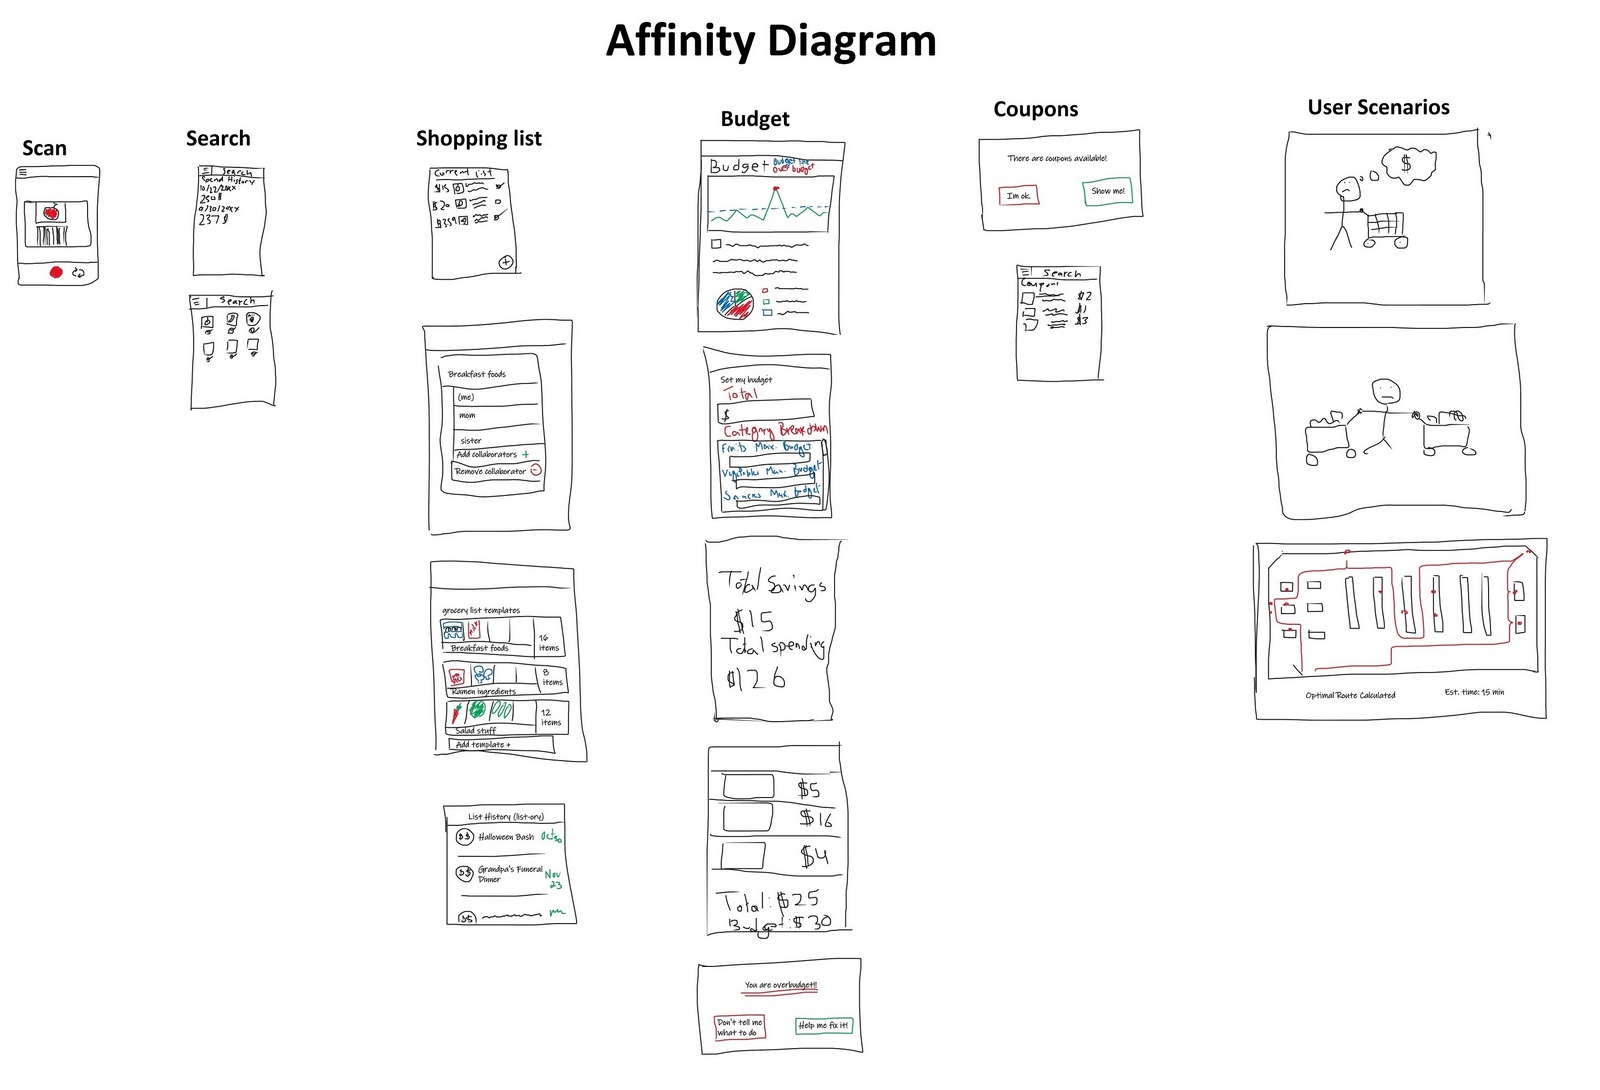 Affinity Diagram
Scan
Search
Search
Spend History
10/22/20xx
250$
0/30/20xx
237$
Search
Shopping list
Current list
$15
$20
$359
Breakfast foods
(me)
mom
sister
Add collaborators +
Remove collaborator -
grocery list templates
Breakfast foods
16
items
Ramen ingredients
8
items
Salad stuff
12
items
Add template +
List History (list-ory)
$$ Halloween Bash Oct 30
$$ Grandpa's Funeral
Dinner
Nov
23
$$
Budget
Budget
Budget line
Over budget
Set my budget
Total
$
Category Breakdown
Fruits Max. Budget
Vegetables Max. Budget
Max. Budget
Total Savings
$15
Total spending
$126
$5
$16
$4
Total: $25
Budget: $30
You are overbudget!!
Don't tell me
what to do
Help me fix it!
Coupons
There are coupons available!
I'm ok.
Show me!
Search
Coupons
$2
$1
$3
User Scenarios
$
Optimal Route Calculated
Est. time: 15 min